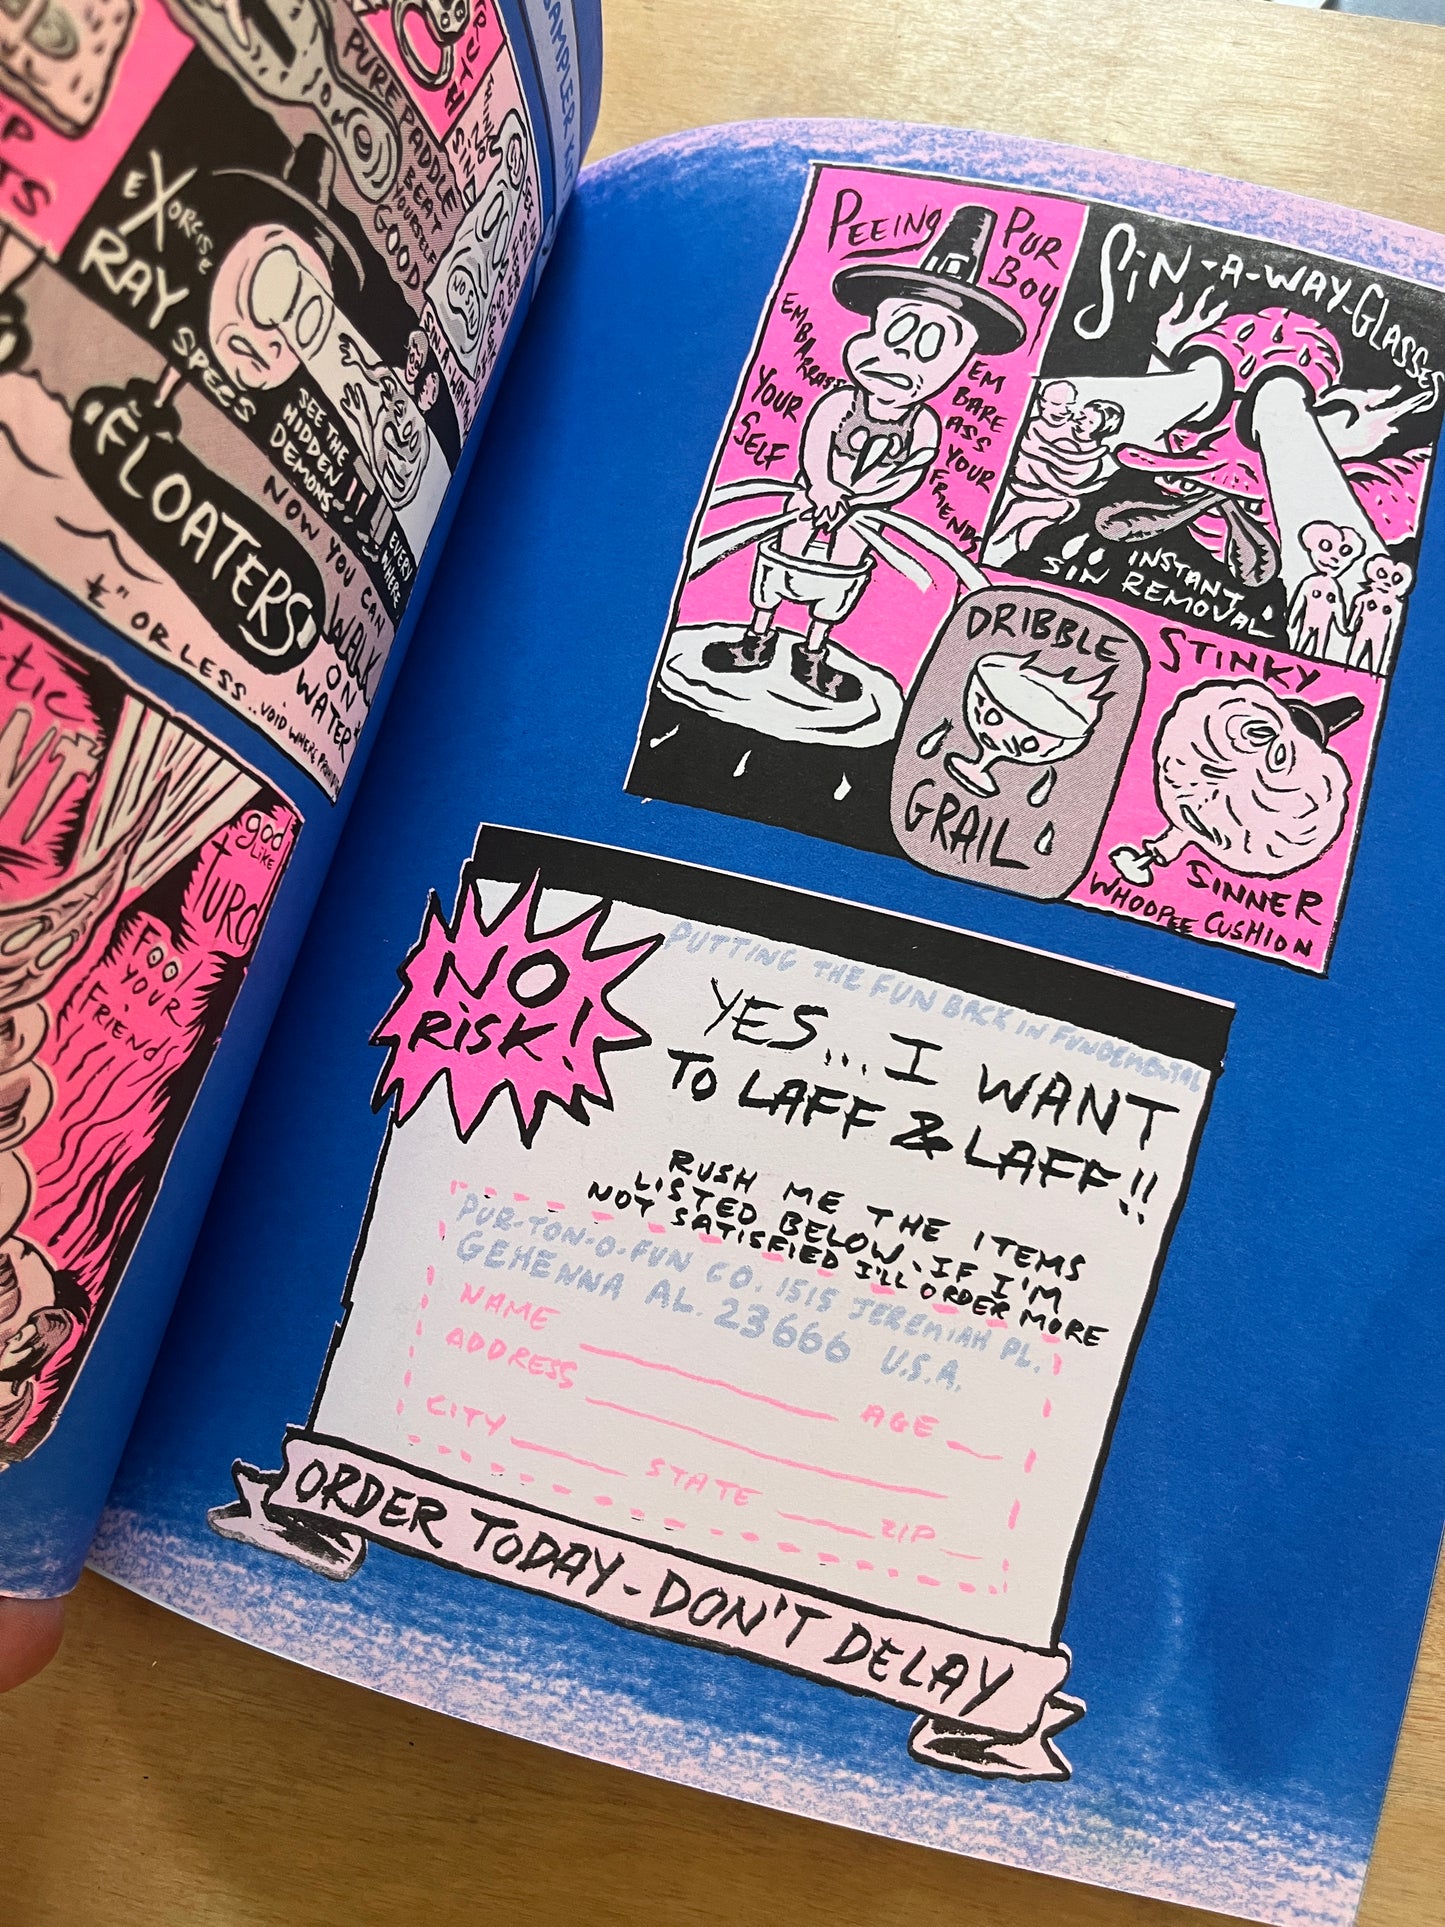 SAMPLER
PURE PADDLE
BEAT
YOURSELF
GOOD
EXORCISE
RAY
SPECS
SEE THE
HIDDEN
DEMONS!!!
EVERY
WHERE
FLOATERS
NOW YOU CAN
WALK
ON
WATER*
*" OR LESS..VOID WHERE
god
LIKE
TURD
FOOL
YOUR
FRIENDS
PEEING
PUR
BOY
EMBARRASS
YOUR
SELF
EM
BARE
ASS
YOUR
FRIENDS
SIN-A-WAY-GLASSES
INSTANT
SIN REMOVAL
DRIBBLE
GRAIL
STINKY
SINNER
WHOOPEE CUSHION
NO
RISK!
PUTTING THE FUN BACK IN FUNDEMENTAL
YES... I WANT
TO LAFF & LAFF!!
RUSH ME THE ITEMS
LISTED BELOW. IF I'M
NOT SATISFIED I'LL ORDER MORE
PUR-TON-O-FUN CO. 1515 JEREMIAH PL.
GEHENNA AL. 23666 U.S.A.
NAME AGE
ADDRESS
CITY STATE ZIP
ORDER TODAY-DON'T DELAY